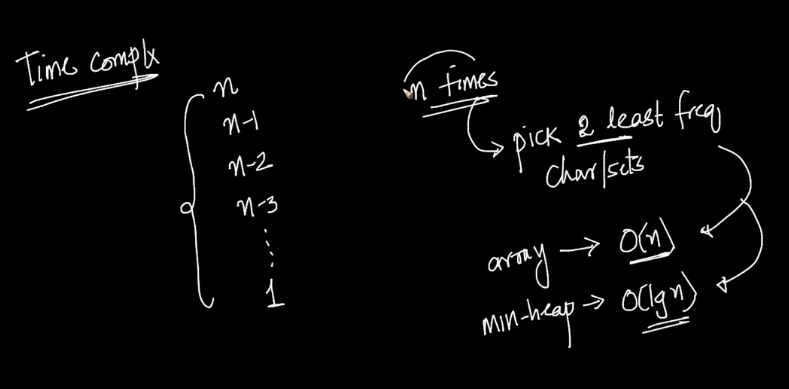 Time complx
n
n-1
n-2
n-3
1
n times
pick 2 least freq
char/sets
array → O(n)
min-heap → O(lg n)